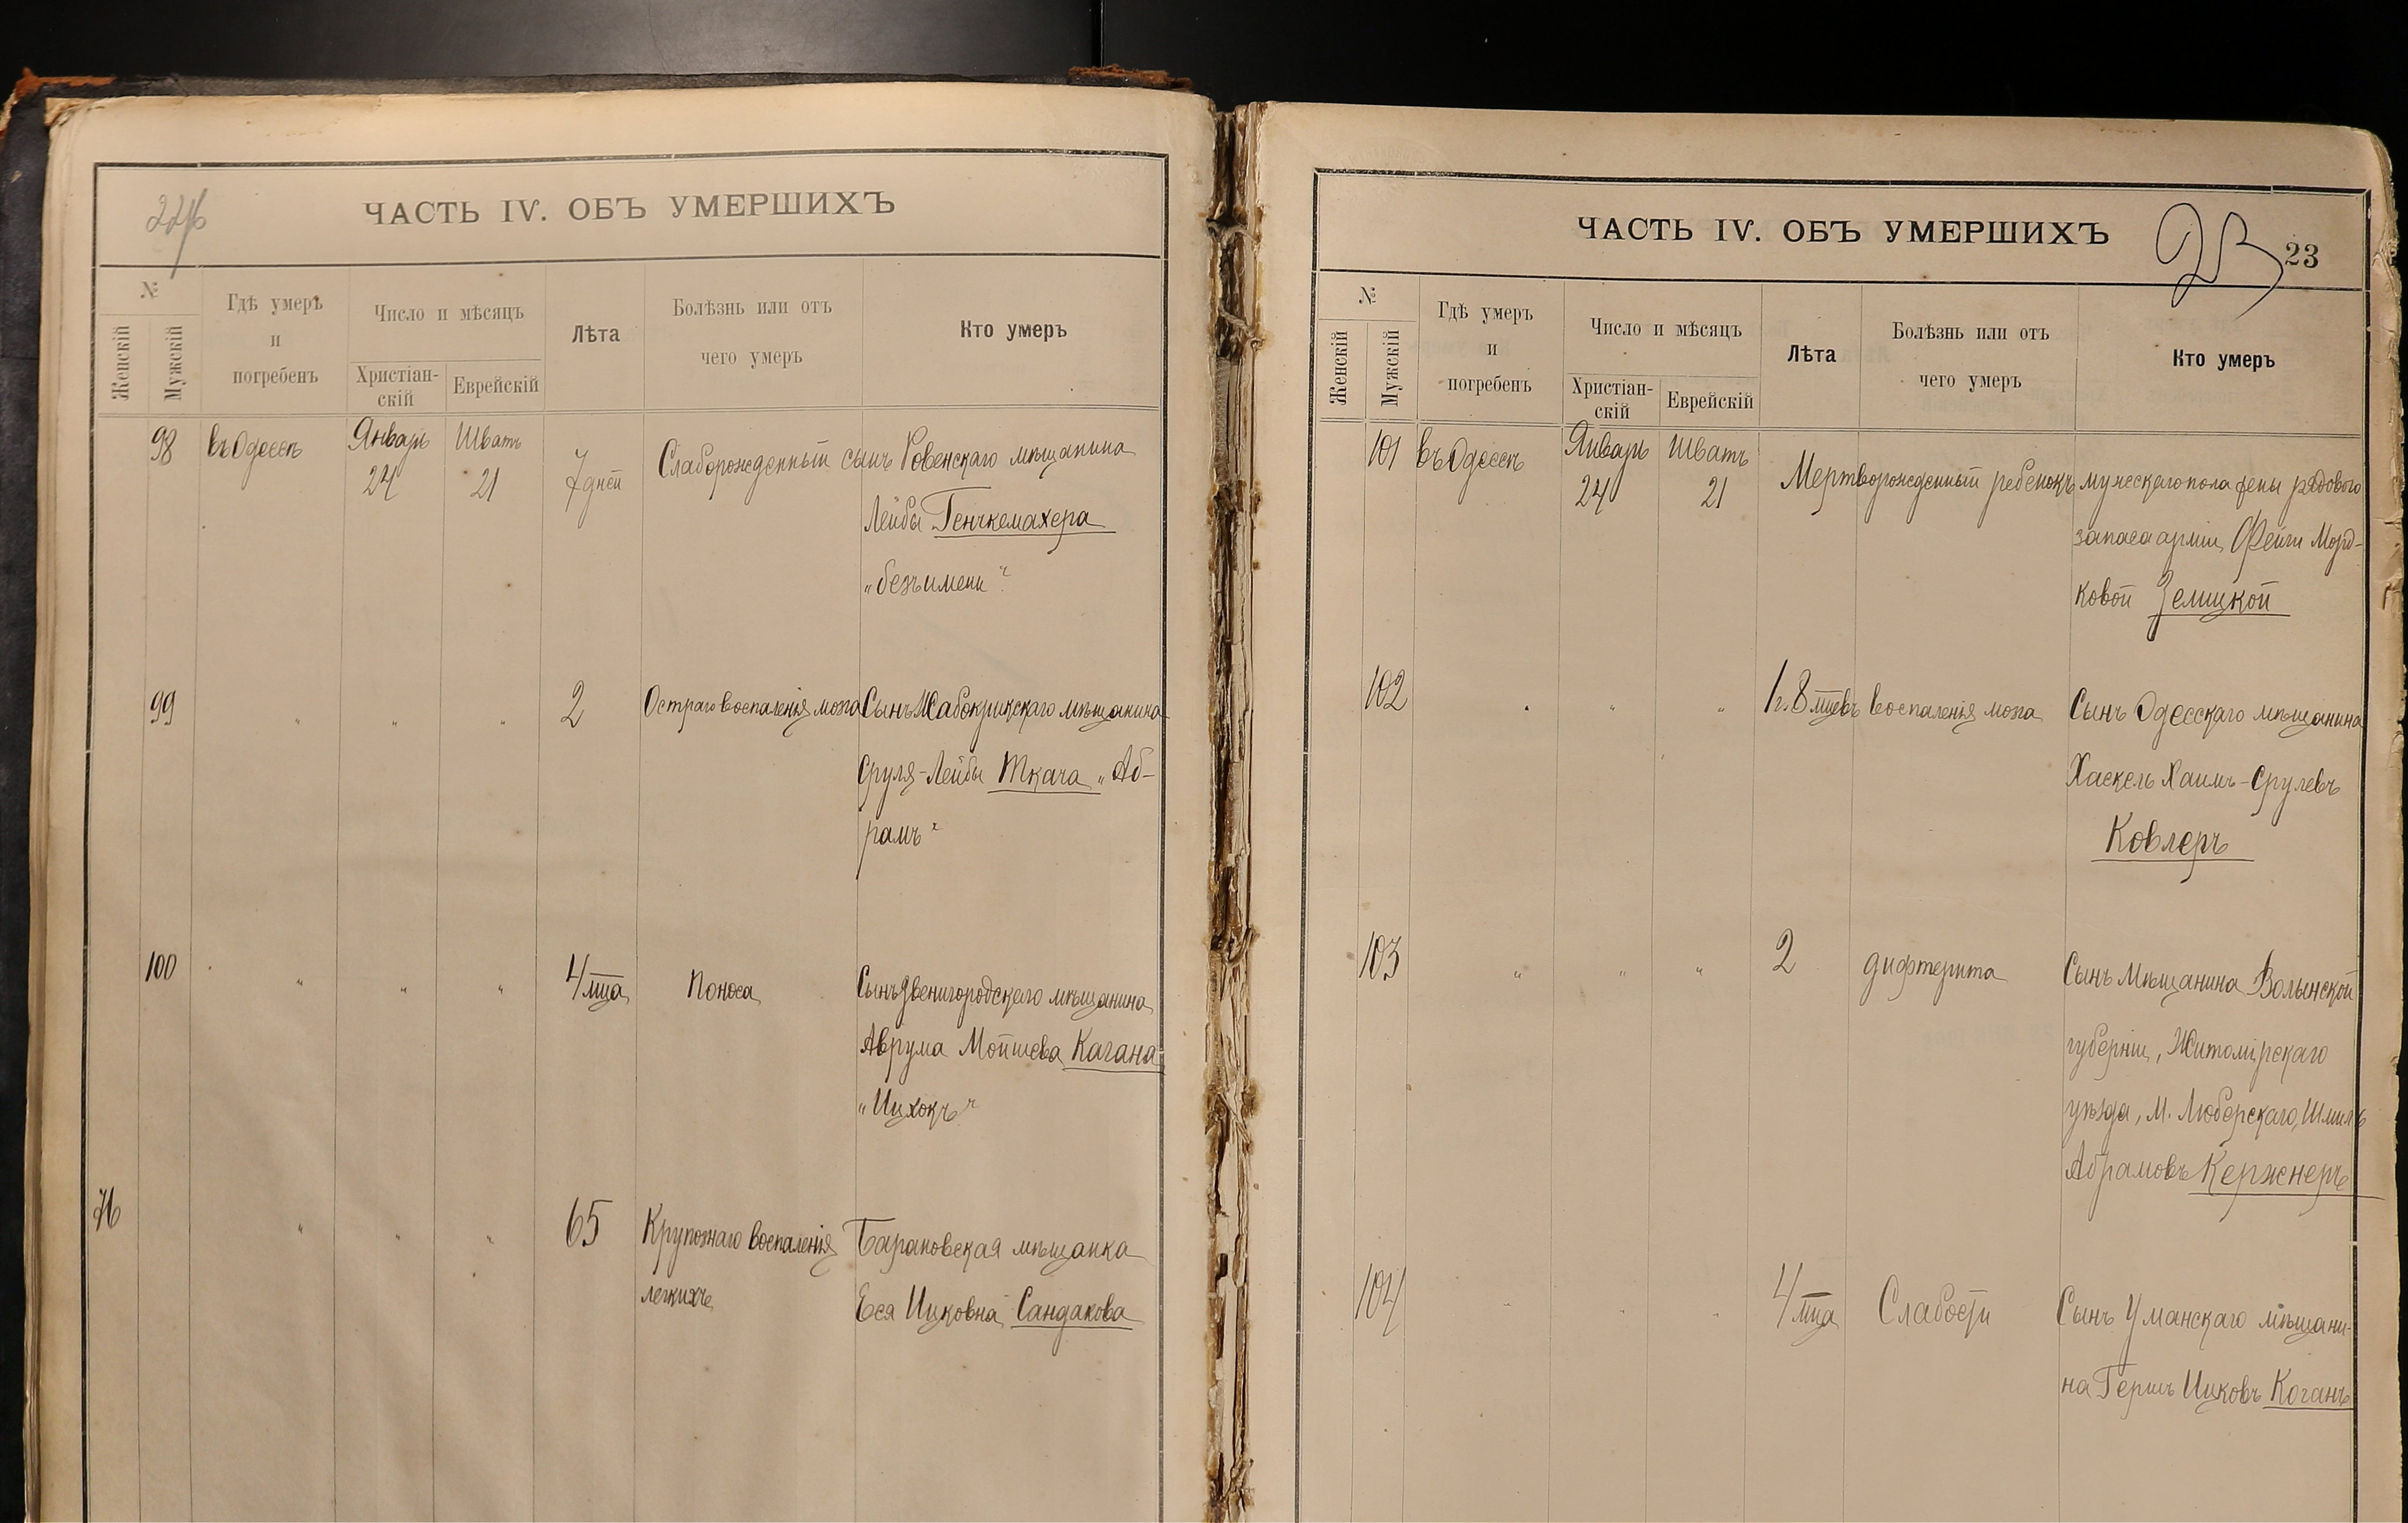 ЧАСТЬ IV. ОБЪ УМЕРШИХЪ
№
Женскій
Мужскій
Гдѣ умеръ
и
погребенъ
Число и мѣсяцъ
Христіан-
скій
Еврейскій
Лѣта
Болѣзнь или отъ
чего умеръ
Кто умеръ
98 въ Одессѣ Январь Шватъ 7 дней Слаборожденный сынъ Ровенскаго мѣщанина
24 21
Лейбы Генчкемахера
„безъ имени“
99 „ „ „ 2 Остраго воспаленія мозга Сынъ Жабокрикскаго мѣщанина
Сруля-Лейбы Ткача „Аб-
рамъ“
100 „ „ „ 4 мца Поноса Сынъ Звенигородскаго мѣщанина
Аврума Мойшева Кагана
„Ицхокъ“
„ „ „ 65 Крупознаго воспаленія Барановская мѣщанка
легкихъ Еся Ицковна Сандакова
ЧАСТЬ IV. ОБЪ УМЕРШИХЪ
23
23
№
Женскій
Мужскій
Гдѣ умеръ
и
погребенъ
Число и мѣсяцъ
Христіан-
скій
Еврейскій
Лѣта
Болѣзнь или отъ
чего умеръ
Кто умеръ
101 въ Одессѣ Январь Шватъ Мертворожденный ребенокъ мужескаго пола жены рядового
24 21
запаса арміи Фейги Морд-
ковой Зелицкой
102 „ „ „ 1 г. 8 мцевъ воспаленія мозга Сынъ Одесскаго мѣщанина
Хаскель Хаимъ-Срулевъ
Ковлеръ
103 „ „ „ 2 дифтерита Сынъ мѣщанина Волынской
губерніи, Житомірскаго
уѣзда, м. Любарскаго, Шмиль
Абрамовъ Кержнеръ
104 „ „ „ 4 мца Слабости Сынъ Уманскаго мѣщани-
на Гершъ Ицковъ Коганъ